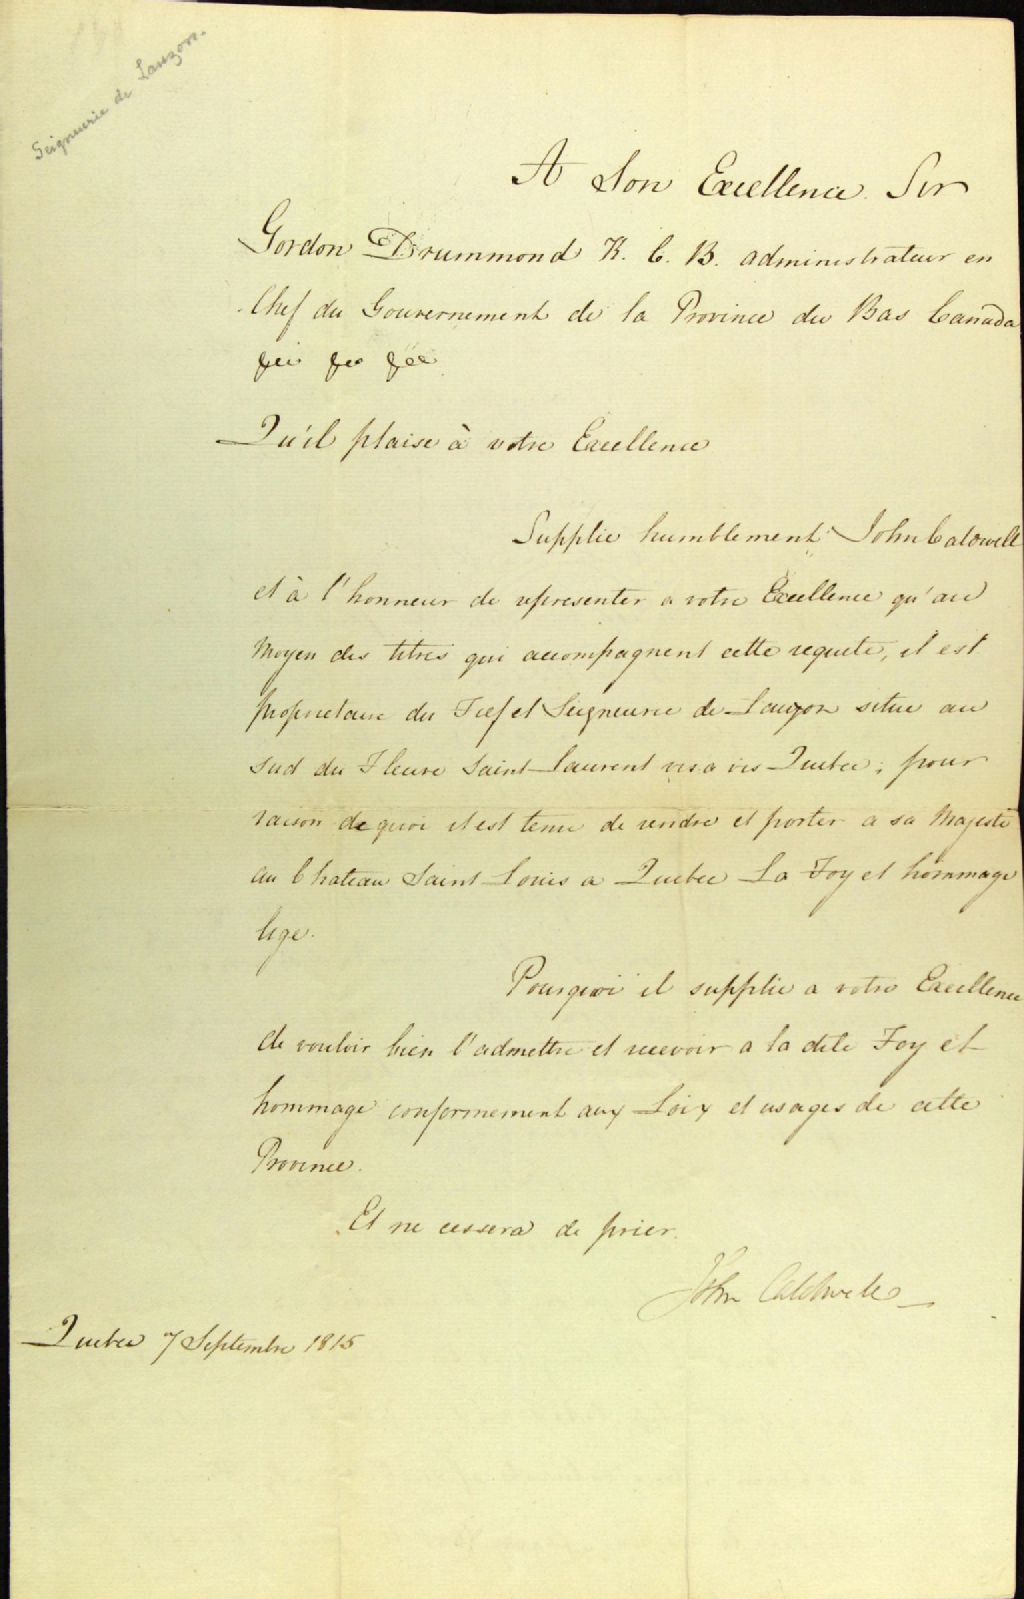 Seigneurie de Lauzon.
A Son Excellence Sir
Gordon Drummond K. C. B. administrateur en
Chef du Gouvernement de la Province du Bas Canada
&ca &ca &ca
Qu'il plaise à votre Excellence
Supplie humblement John Caldwell
et à l'honneur de representer a votre Excellence qu'au
Moyen des titres qui accompagnent cette requete, il est
proprietaire du Fief et Seigneurie de Lauzon situe au
Sud du Fleuve Saint Laurent vis a vis Quebec; pour
raison de quoi il est tenu de rendre et porter a sa Majesté
au Chateau Saint Louis a Quebec La Foy et hommage
lige.
Pourquoi il supplie a votre Excellence
de vouloir bien l'admettre et recevoir a la dite Foy et
hommage conformement aux Loix et usages de cette
Province.
Et ne cessera de prier.
John Caldwell
Quebec 7 Septembre 1815